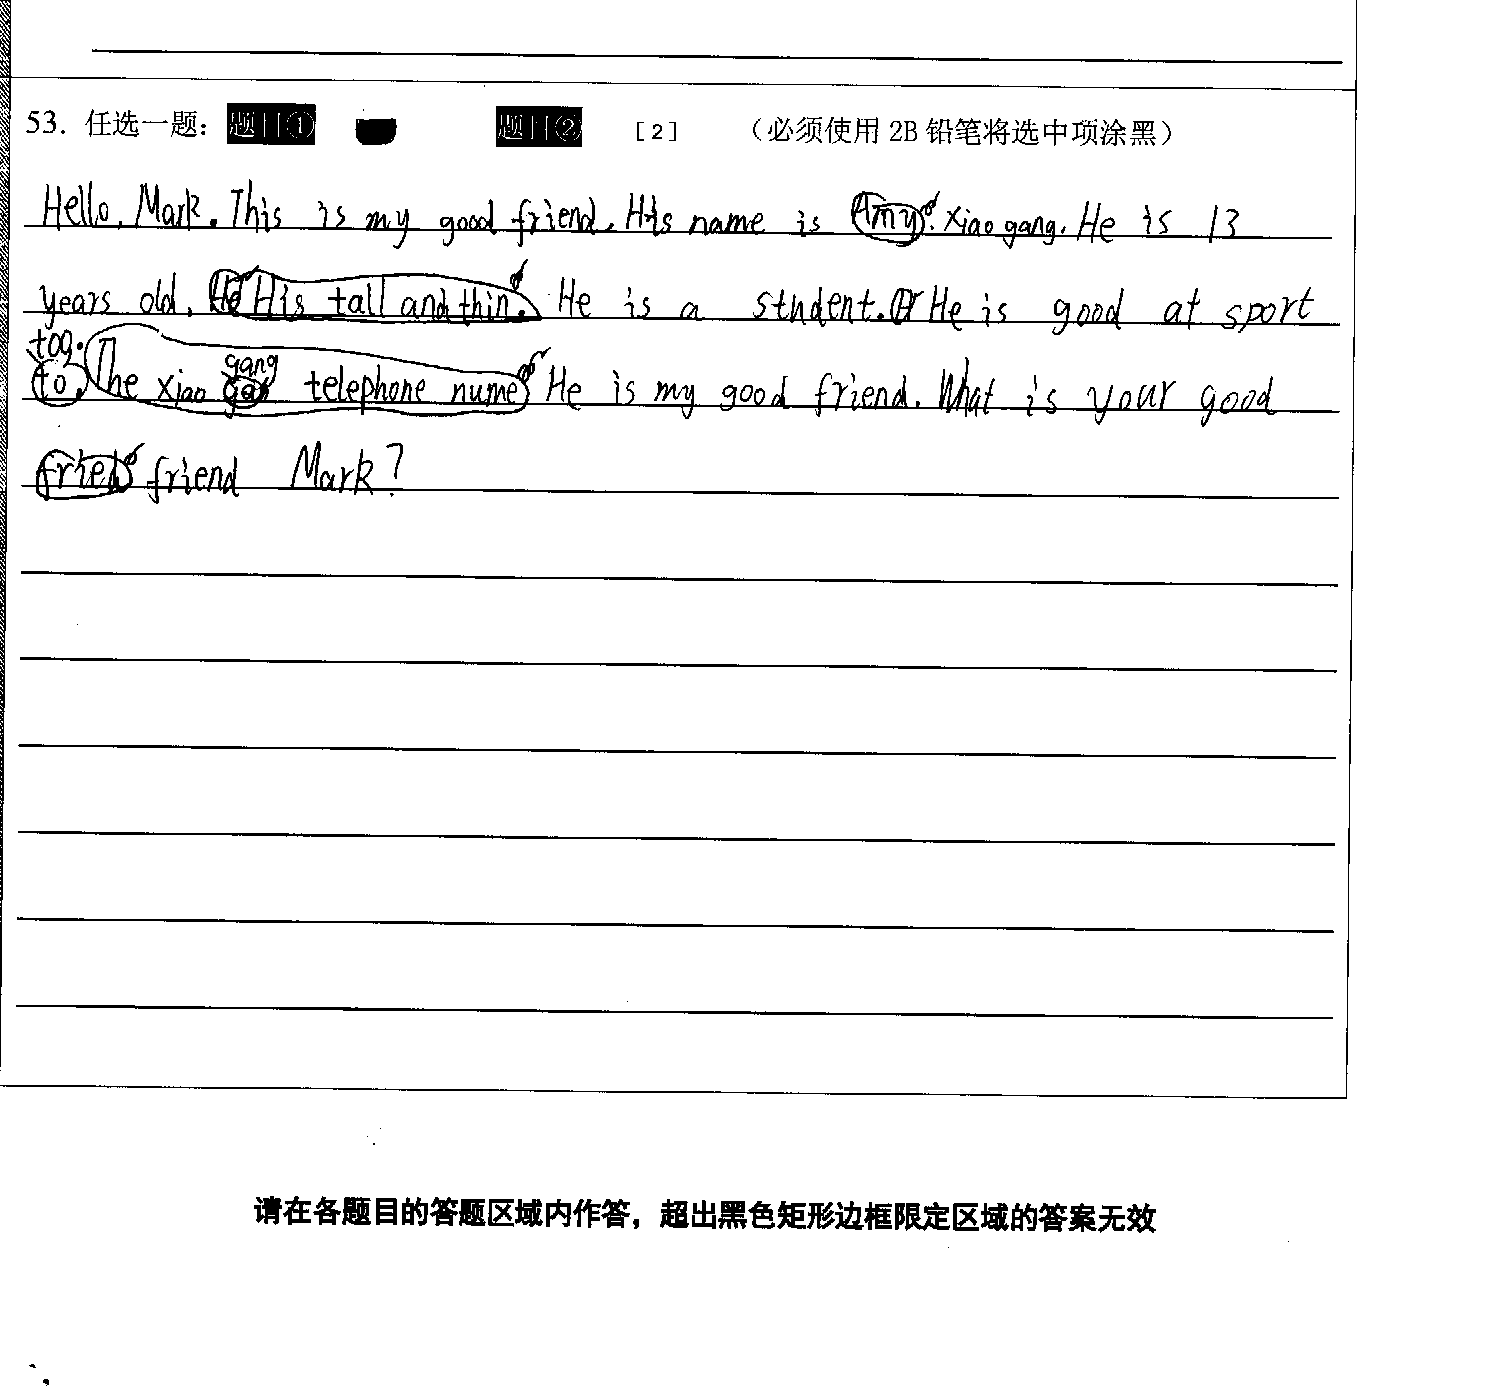 53. 任选一题: 题目① 题目② [2] (必须使用 2B 铅笔将选中项涂黑)
Hello, Mark. This is my good friend. His name is Amy. Xiao gang. He is 13
years old. He His tall and thin. He is a student. He is good at sport
tog.
to. The xiao gang telephone nume He is my good friend. What is your good
frien friend Mark?
请在各题目的答题区域内作答，超出黑色矩形边框限定区域的答案无效